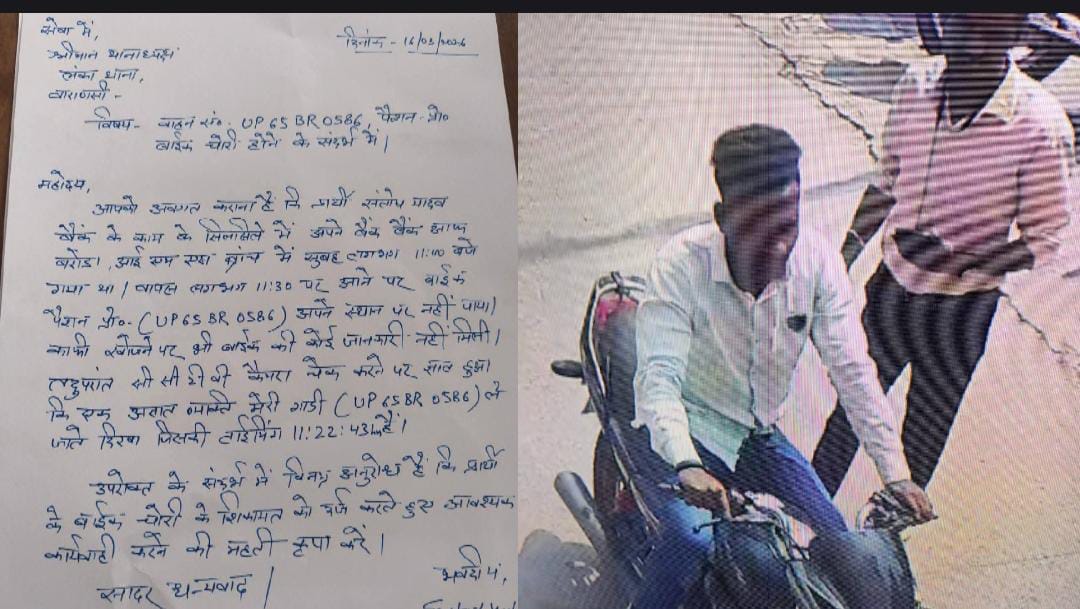 सेवा में,
दिनांक - 16/03/2026
श्रीमान थानाध्यक्ष
लंका थाना,
वाराणसी -
विषय - वाहन सं०. UP 65 BR 0586, पैशन प्रो०
बाईक चोरी होने के संदर्भ में।
महोदय,
आपको अवगत कराना है कि प्रार्थी संतोष यादव
बैंक के काम के सिलसिले में अपने बैंक बैंक आफ
बरोडा, आई एम एस ब्रांच में सुबह लगभग 11:00 बजे
गया था। वापस लगभग 11:30 पर आने पर बाईक
पैशन प्रो०. (UP 65 BR 0586) अपने स्थान पर नहीं पाया।
काफी खोजने पर भी बाईक की कोई जानकारी नहीं मिली।
तदुपरांत सी सी टी वी कैमरा चेक करने पर ज्ञात हुआ
कि एक अज्ञात व्यक्ति मेरी गाडी (UP 65 BR 0586) ले
जाते दिखा जिसकी टाईमिंग 11:22:43 है।
उपरोक्त के संदर्भ में विनम्र अनुरोध है कि प्रार्थी
के बाईक चोरी के शिकायत को दर्ज करते हुए आवश्यक
कार्यवाही करने की महती कृपा करें।
सादर धन्यवाद।
भवदीय,